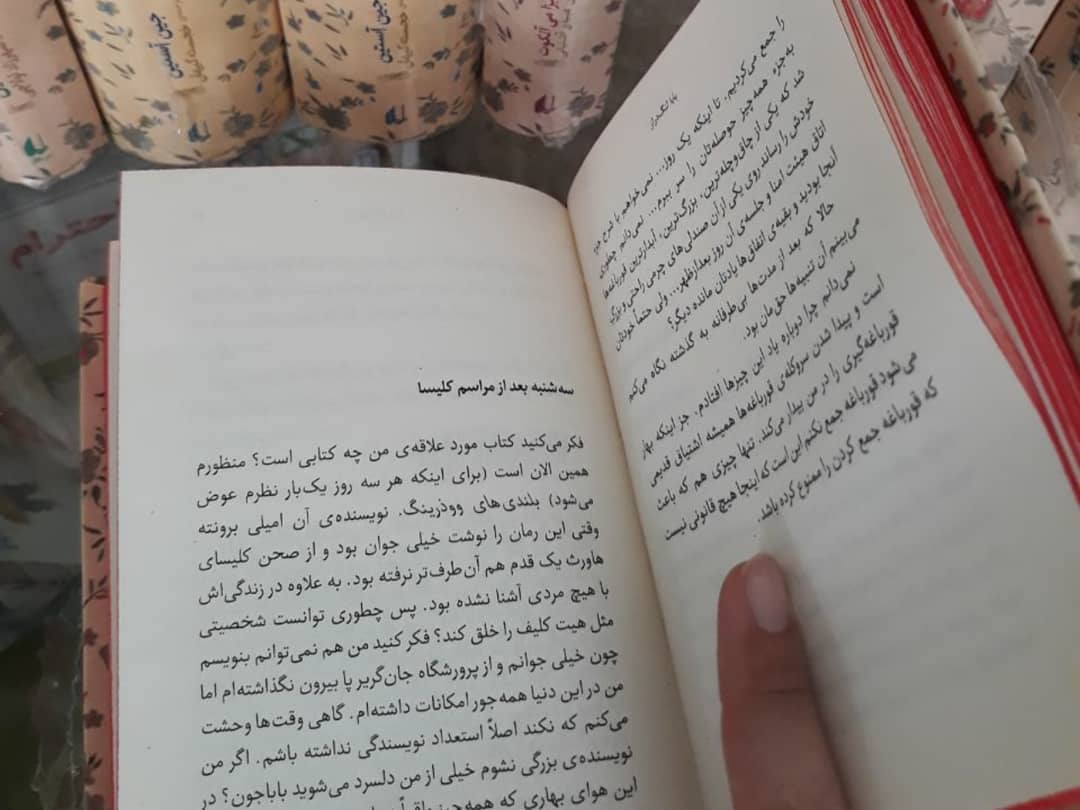 بابا لنگ‌دراز
را جمع می‌کردیم. تا اینکه یک روز... نمی‌خواهم با شرح جزء
به‌جزء همه‌چیز حوصله‌تان را سر ببرم... نمی‌دانم چطوری
شد که یکی از چاق‌وچله‌ترین، بزرگ‌ترین، آبدارترین قورباغه‌ها
خودش را رساند روی یکی از آن صندلی‌های چرمی راحتی و بزرگ
اتاق هیئت امنا و جلسه‌ی آن روز بعدازظهر... ولی حتماً خودتان
آنجا بودید و بقیه‌ی اتفاق‌ها یادتان مانده دیگر؟
حالا که بعد از مدت‌ها بی‌طرفانه به گذشته نگاه می‌کنم
می‌بینم آن تنبیه‌ها حق‌مان بود.
نمی‌دانم چرا دوباره یاد این چیزها افتادم. جز اینکه بهار
است و پیدا شدن سروکله‌ی قورباغه‌ها همیشه اشتیاق قدیمی
قورباغه‌گیری را در من بیدار می‌کند. تنها چیزی هم که باعث
می‌شود قورباغه جمع نکنم این است که اینجا هیچ قانونی نیست
که قورباغه جمع کردن را ممنوع کرده باشد.
سه‌شنبه بعد از مراسم کلیسا
فکر می‌کنید کتاب مورد علاقه‌ی من چه کتابی است؟ منظورم
همین الان است (برای اینکه هر سه روز یک‌بار نظرم عوض
می‌شود) بلندی‌های وودرینگ. نویسنده‌ی آن امیلی برونته
وقتی این رمان را نوشت خیلی جوان بود و از صحن کلیسای
هاورث یک قدم هم آن‌طرف‌تر نرفته بود. به علاوه در زندگی‌اش
با هیچ مردی آشنا نشده بود. پس چطوری توانست شخصیتی
مثل هیت کلیف را خلق کند؟ فکر کنید من هم نمی‌توانم بنویسم
چون خیلی جوانم و از پرورشگاه جان‌گریر پا بیرون نگذاشته‌ام اما
من در این دنیا همه‌جور امکانات داشته‌ام. گاهی وقت‌ها وحشت
می‌کنم که نکند اصلاً استعداد نویسندگی نداشته باشم. اگر من
نویسنده‌ی بزرگی نشوم خیلی از من دلسرد می‌شوید باباجون؟ در
این هوای بهاری که همه‌چیز
جین آستین
جین آستین
احترام